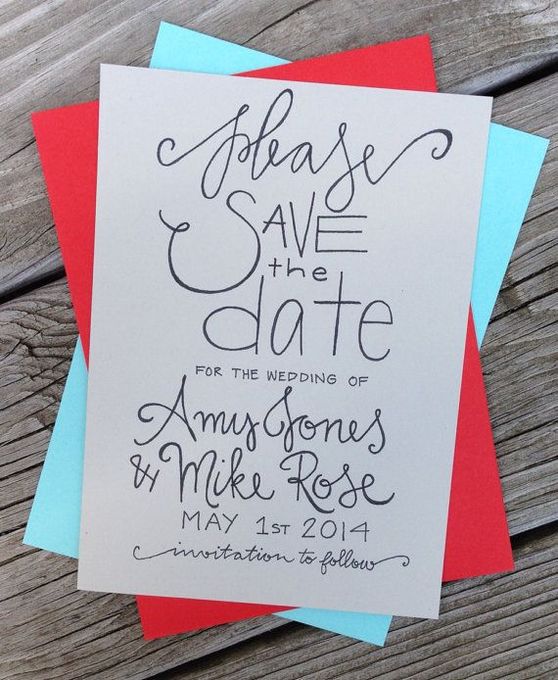 please
SAVE
the
date
FOR THE WEDDING OF
Amy Jones
& Mike Rose
MAY 1ST 2014
invitation to follow